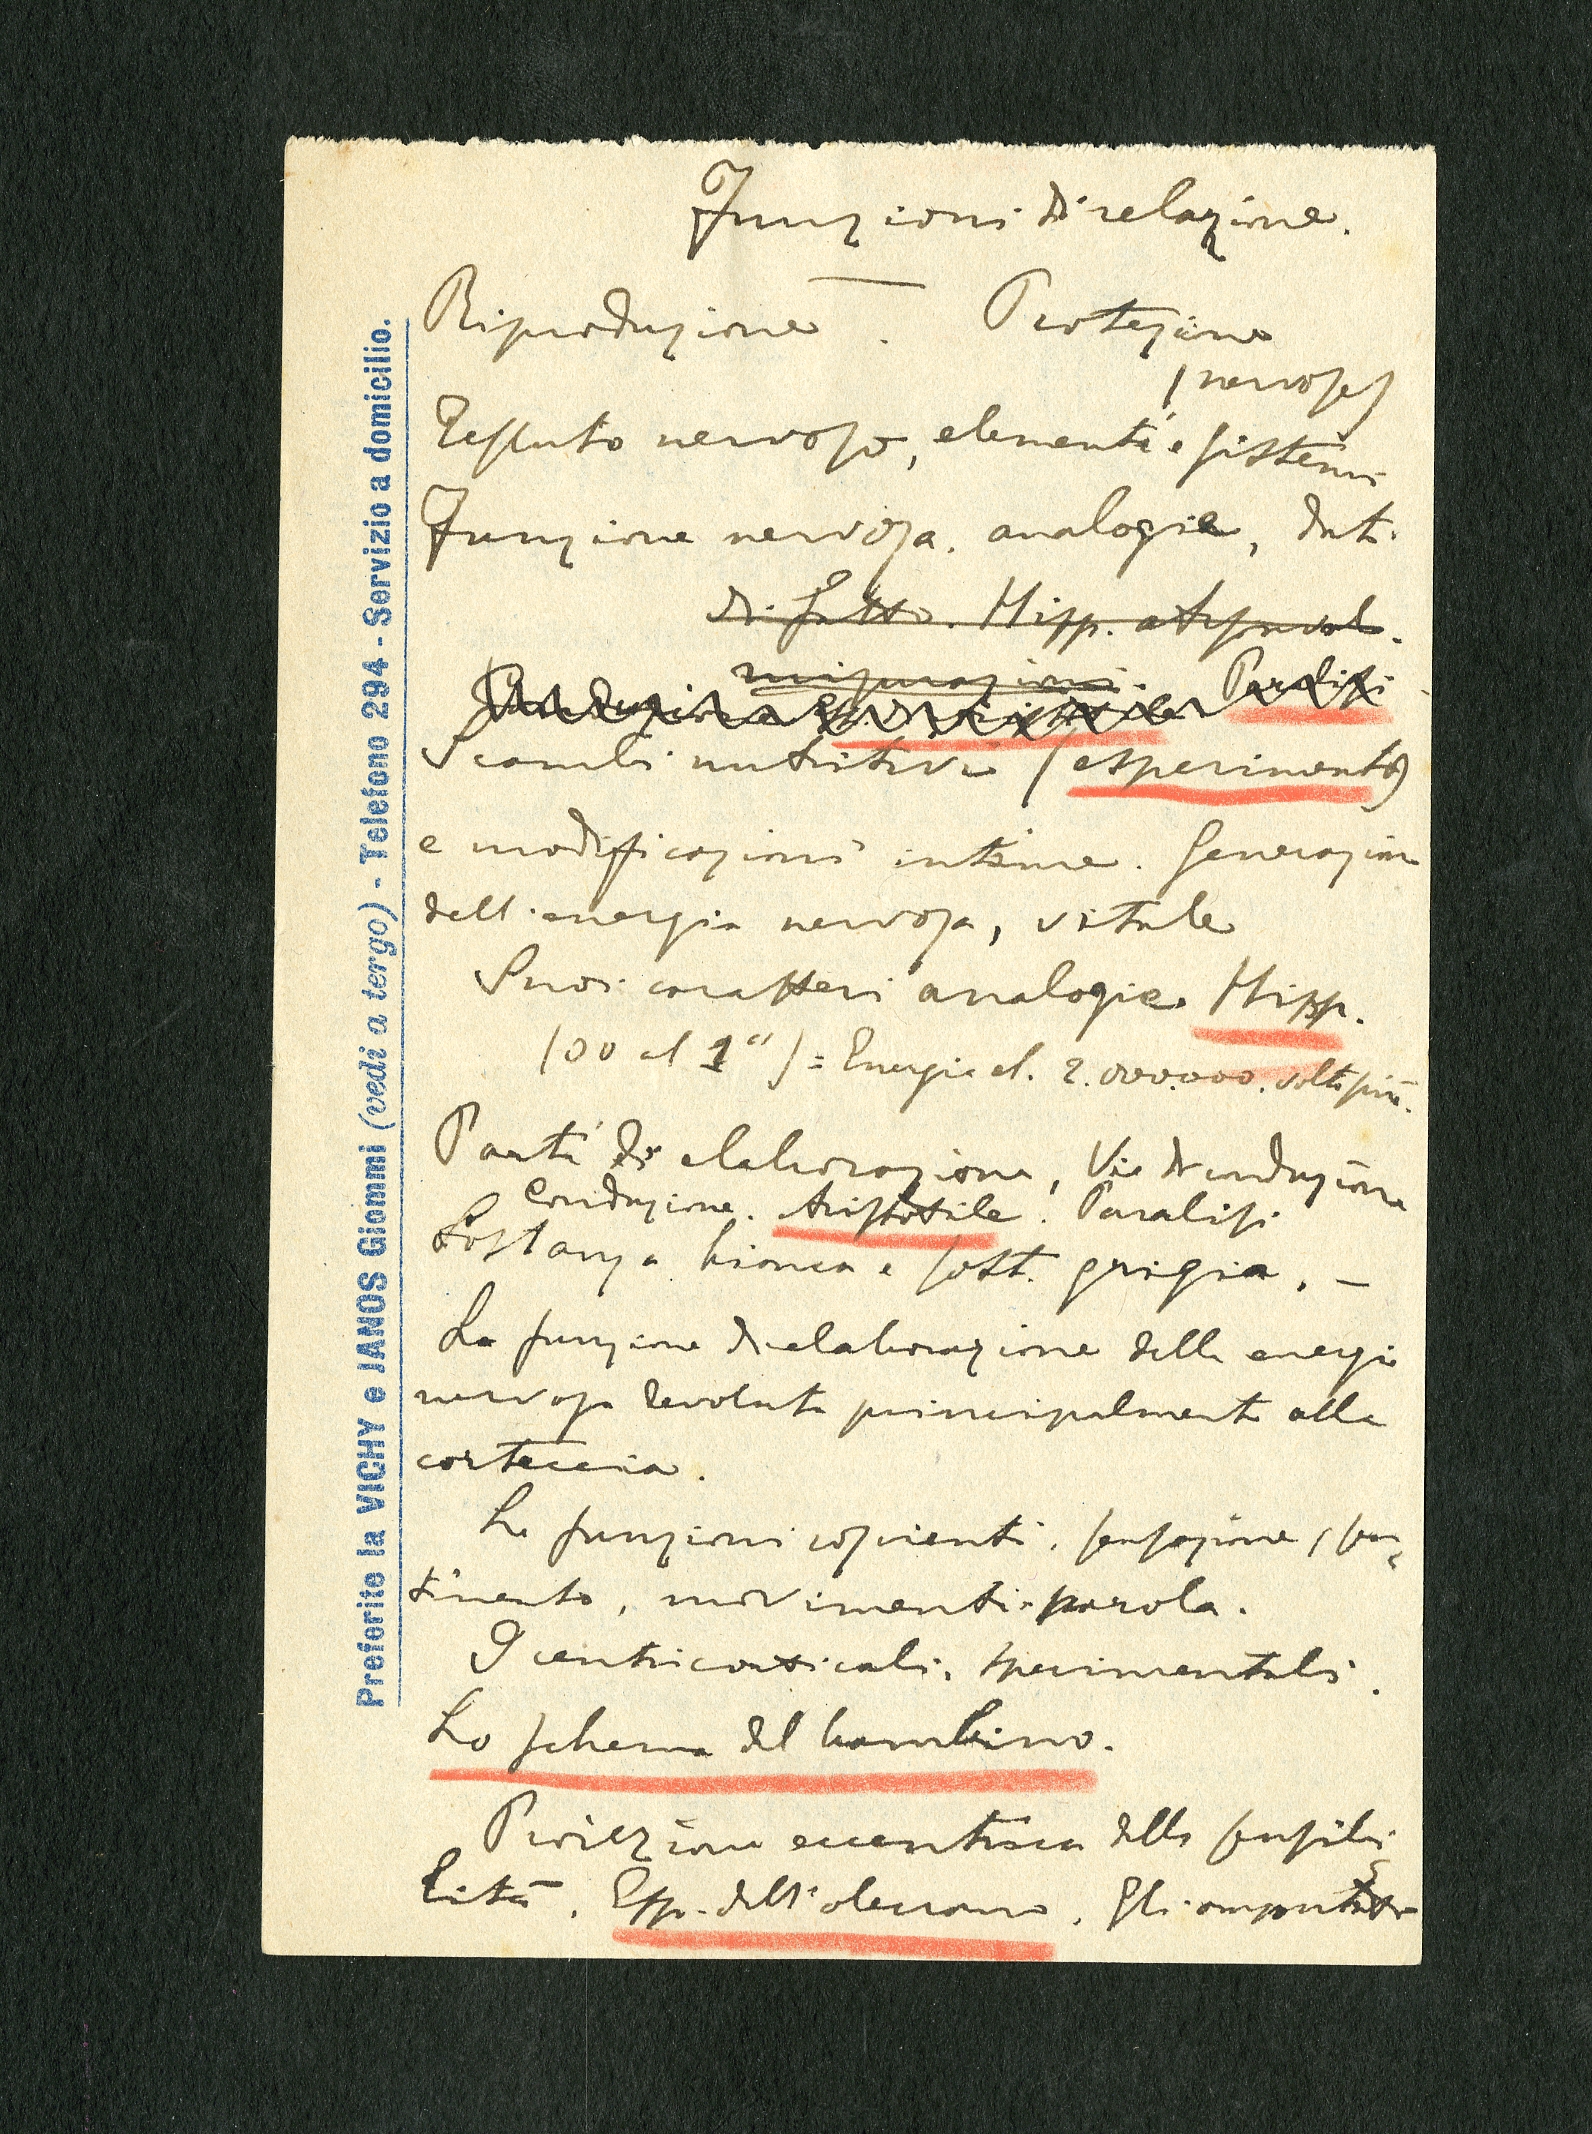 Funzioni di relazione.
Riproduzione. Protezione
(nervosi)
Tessuto nervoso, elementi e sistemi
Funzione nervosa. analogie, dati
di fatto. Hipp.
misurazioni. Paralisi
Conduzione
Scambi nutritivi (esperimento)
e modificazioni intime. Generazione
dell'energia nervosa, vitale
Suoi caratteri analogie. Hipp.
(00 al 1") = Energia el. 2.000.000. volte più.
Parti di elaborazione, Vie di conduzione
Conduzione. Aristotile. Paralisi
Sostanza bianca e sost. grigia. —
La funzione di elaborazione della energia
nervosa devoluta principalmente alla
corteccia.
Le funzioni coscienti. sensazione, sen-
timento, movimenti-parola.
I centri corticali. sperimentali.
Lo schema del bambino.
Proiezione eccentrica della sensibi-
lità. Esp. dell'olecrano. Gli
Preferite la VICHY e IANOS Giommi (vedi a tergo) - Telefono 294 - Servizio a domicilio.